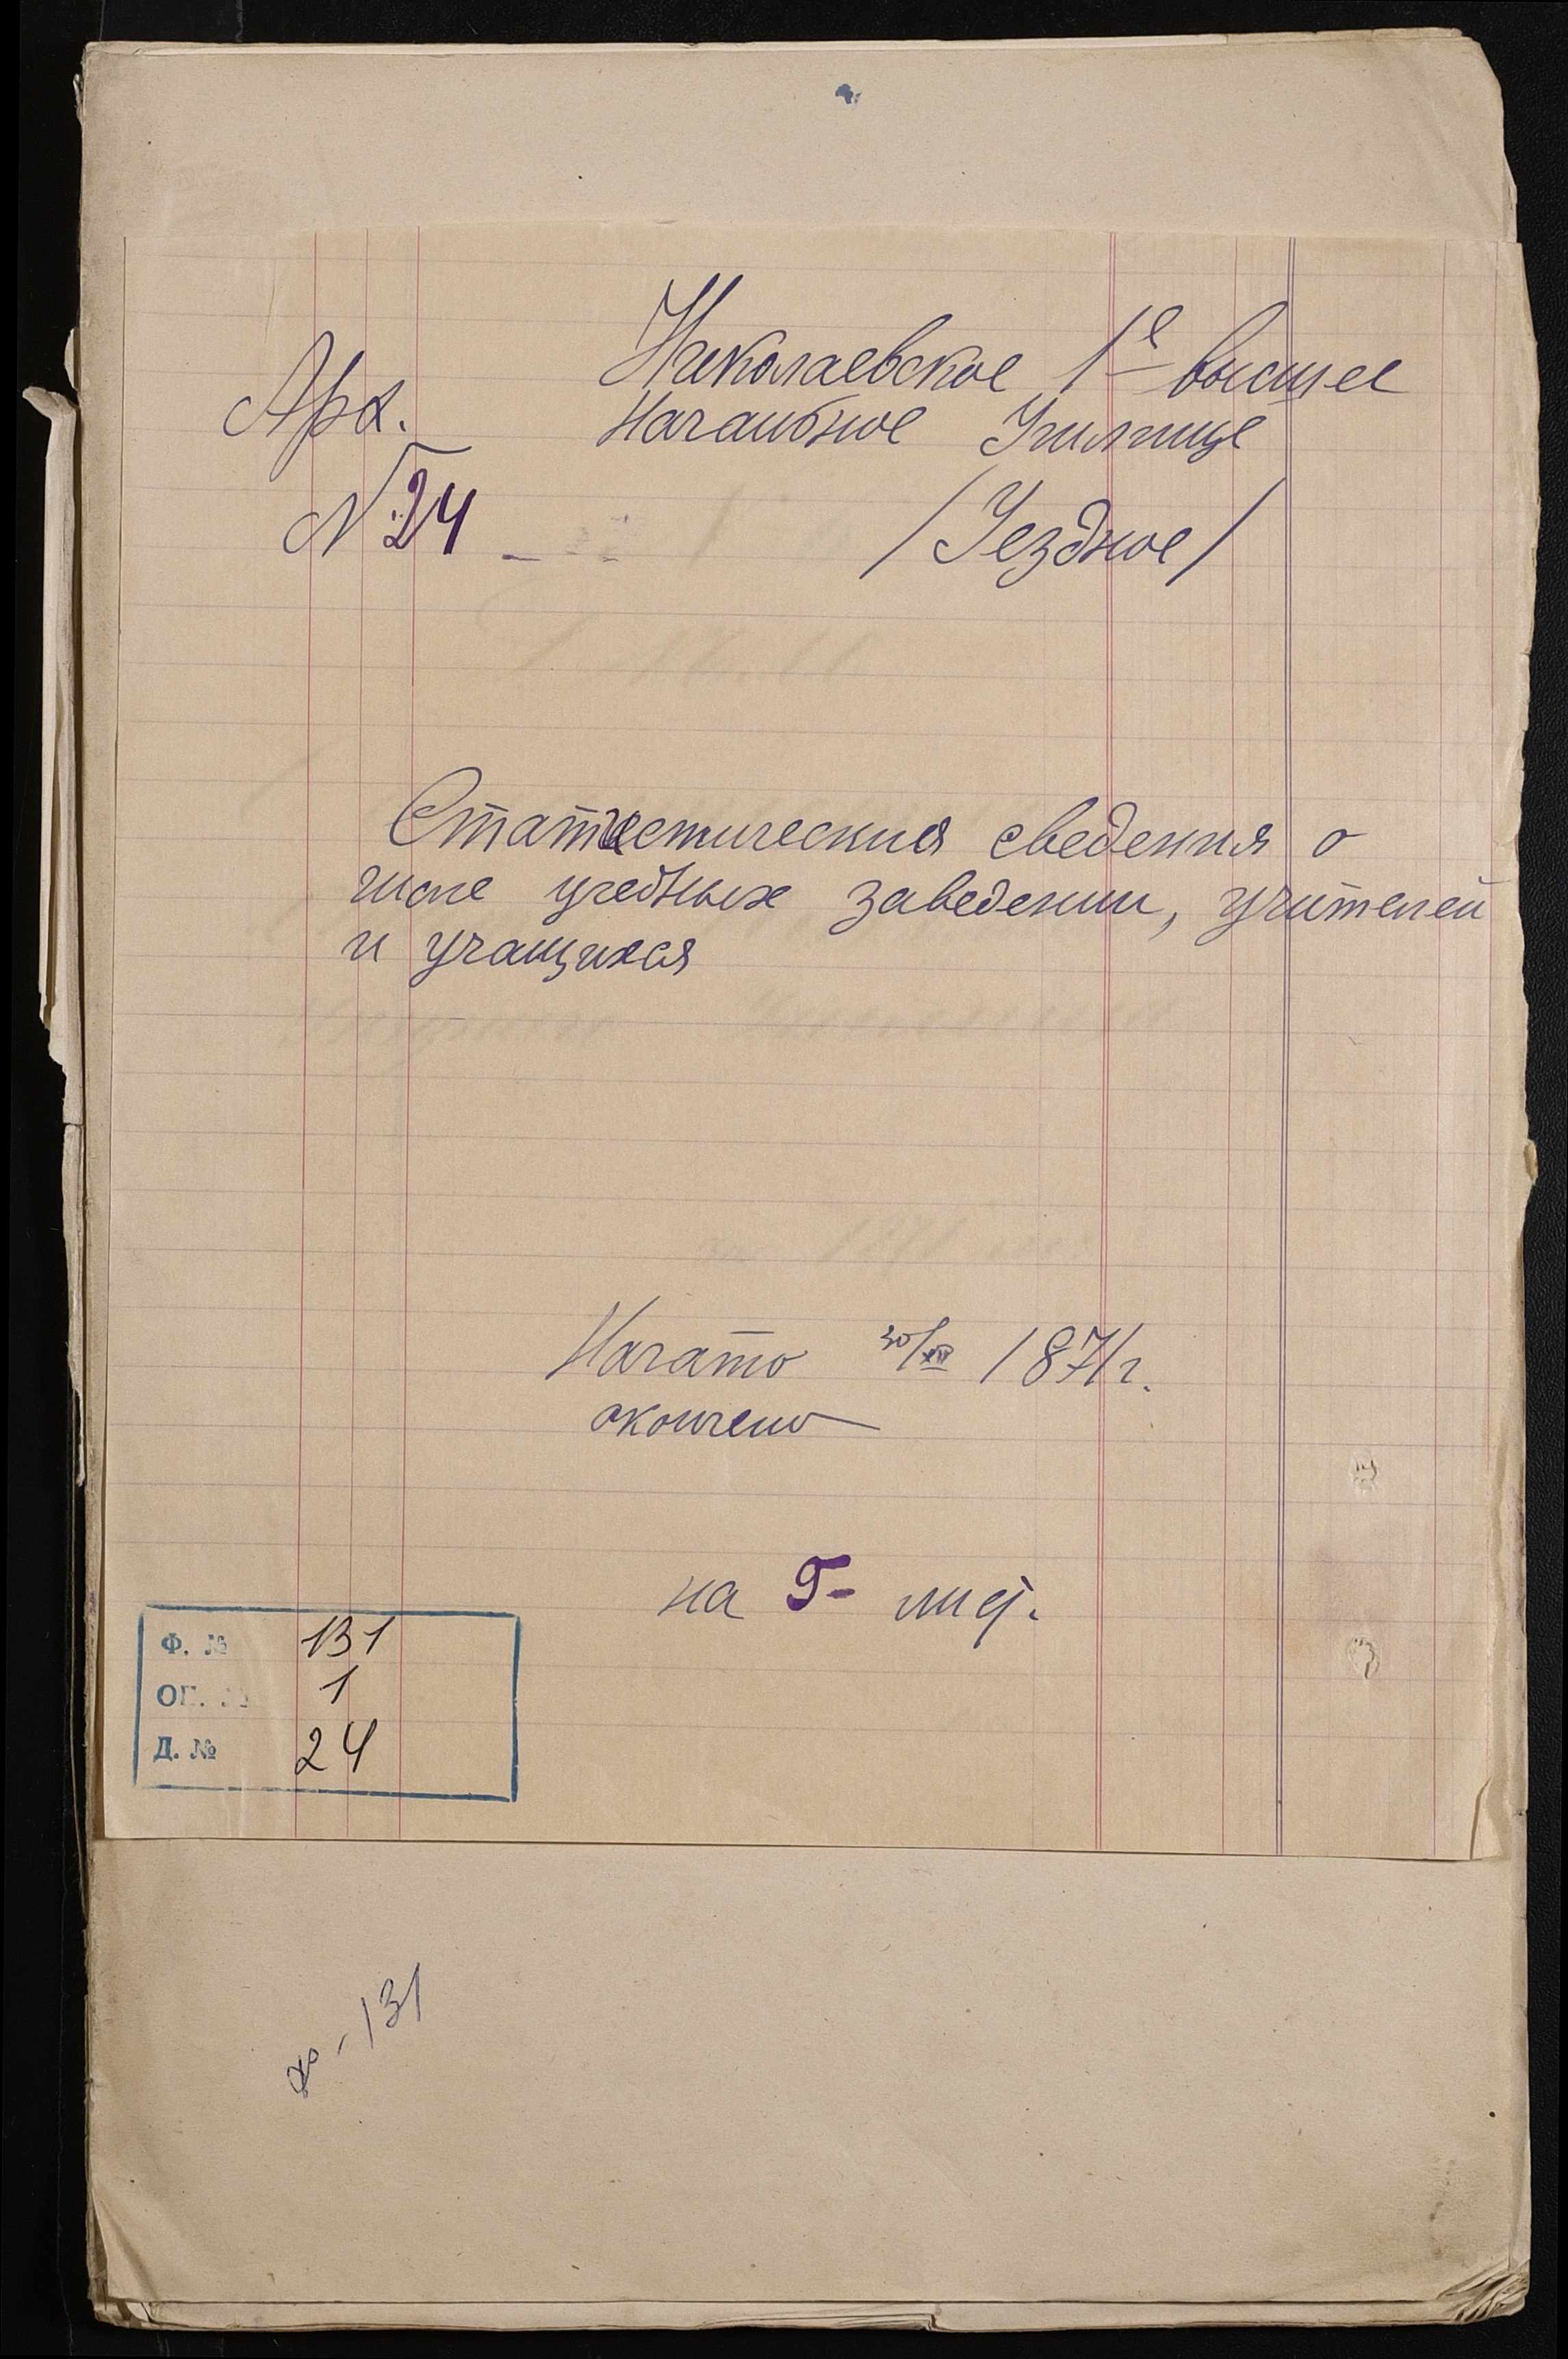 Николаевское 1е высшее
Арх.
начальное Училище
№ 24
/Уездное/
Статистические сведения о
числе учебных заведении, учителей
и учащихся
Начато 30/XII 1871 г.
окончено
на 5 лис.
Ф. № 131
ОП. № 1
Д. № 24
ф-131